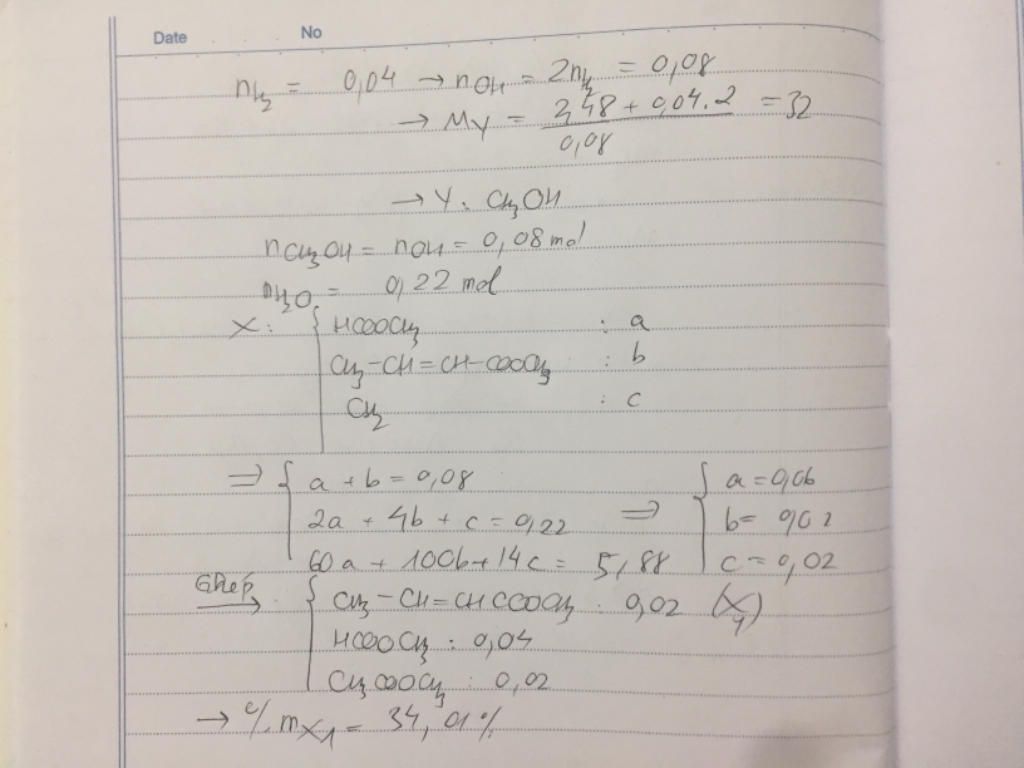 Date No
nH₂ = 0,04 → nOH = 2nH₂ = 0,08
→ MY = (2,48 + 0,04.2) / 0,08 = 32
→ Y: CH₃OH
nCH₃OH = nOH = 0,08 mol
nH₂O = 0,22 mol
X: { HCOOCH₃ : a
CH₃-CH=CH-COOCH₃ : b
CH₂ : c
⇒ { a + b = 0,08 ⇒ { a = 0,06
2a + 4b + c = 0,22 b = 0,02
60a + 100b + 14c = 5,88 c = 0,02
Ghép → { CH₃-CH=CHCCOOCH₃ : 0,02 (X₁)
HCOOCH₃ : 0,04
CH₃COOCH₃ : 0,02
→ % mX₁ = 34,01%